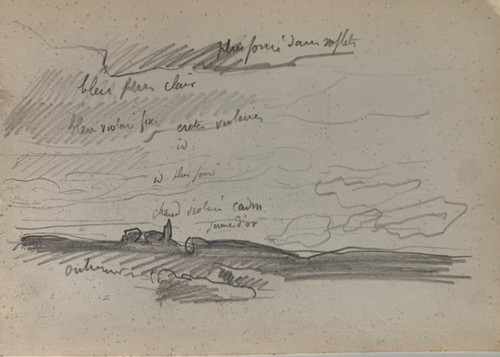 plus foncé dans reflets
bleu plus clair
bleu violacé foncé
crêtes violacées
id
id plus foncé
chaud violacé cadm
jaune d'or
outremer